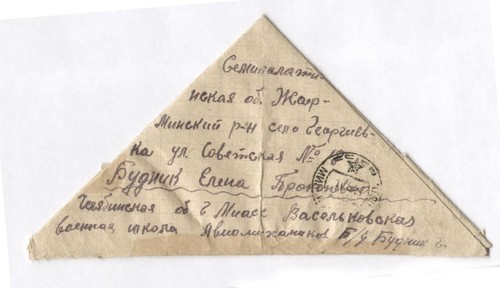 Семипалатин-
нская об. Жар-
минский р-н село Георгиев-
ка ул. Советская №
Будник Елена
Челябинская об г Миасс Васильковская
военная школа Авиомехаников Б/9 Будник Г.